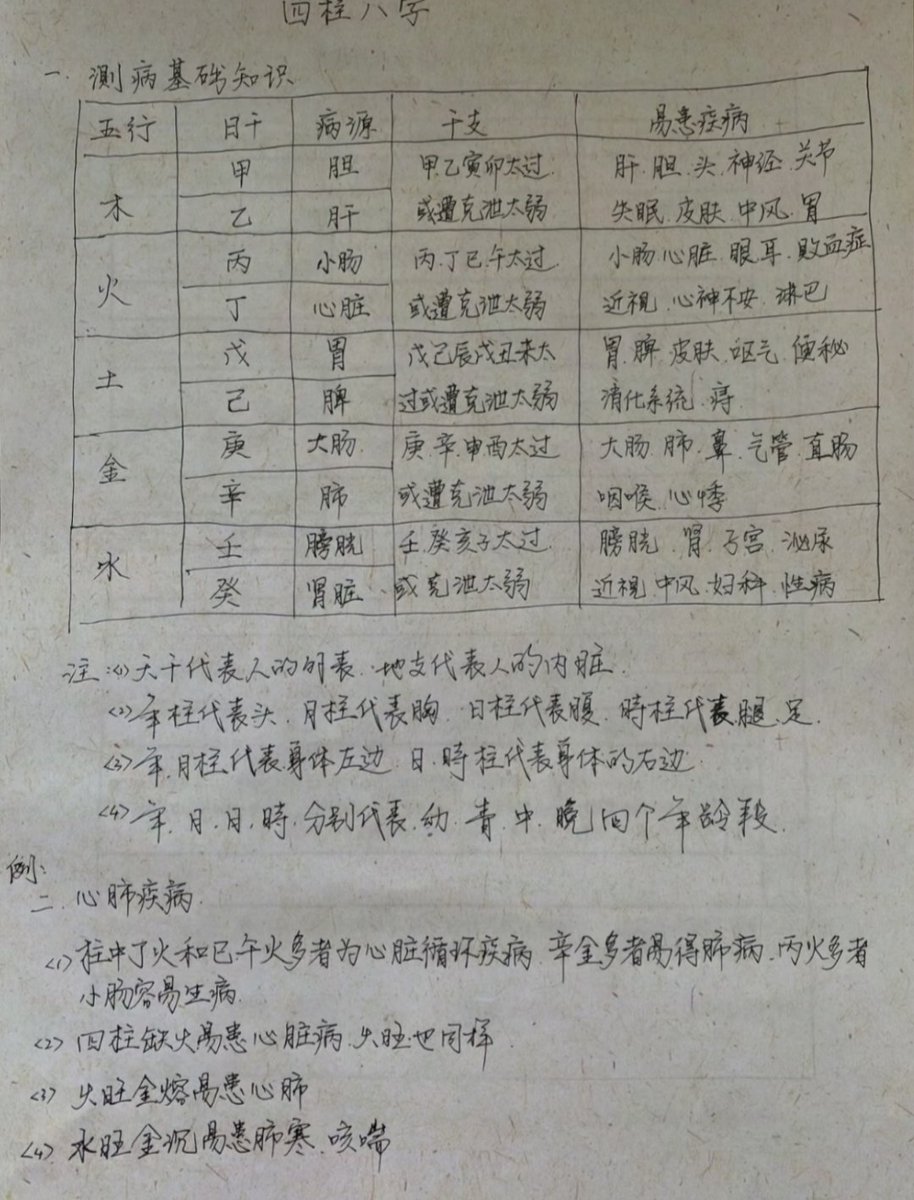 四柱八字
一.测病基础知识
五行 日干 病源 干支 易患疾病
木 甲 胆 甲.乙寅卯太过 肝.胆.头.神经.关节
乙 肝 或遭克泄太弱 失眠.皮肤.中风.胃
火 丙 小肠 丙.丁巳.午太过 小肠.心脏.眼耳.败血症
丁 心脏 或遭克泄太弱 近視.心神不安.淋巴
土 戊 胃 戊己辰戌丑未太 胃.脾.皮肤.呕气.便秘
己 脾 过或遭克泄太弱 消化系统.痔
金 庚 大肠 庚.辛.申酉太过 大肠.肺.鼻.气管.直肠
辛 肺 或遭克泄太弱 咽喉.心悸
水 壬 膀胱 壬.癸亥子太过 膀胱.肾.子宫.泌尿
癸 肾脏 或克泄太弱 近視.中风.妇科.性病
注:<1>天干代表人的外表.地支代表人的内脏.
<2>年柱代表头.月柱代表胸.日柱代表腹.時柱代表腿.足.
<3>年.月柱代表身体左边.日.時柱代表身体的右边
<4>年.月.日.時.分别代表.幼.青.中.晚四个年龄段.
例:
二.心肺疾病.
<1>柱中丁火和巳午火多者为心脏循环疾病.辛金多者易得肺病.丙火多者
小肠容易生病.
<2>四柱缺火易患心脏病.火旺也同样.
<3>火旺金熔易患心肺
<4>水旺金沉易患肺寒.咳喘